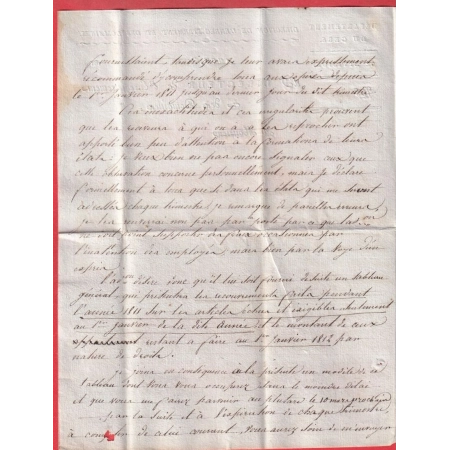 fournissaient, tandis que je leur avais expressément
recommandé d'y comprendre tous ceux opérés depuis
le 1er Janvier 1811 jusqu'au dernier jour du dit trimestre
Ces inexactitudes et ces singularités prouvent
que les receveurs à qui on a ces reproches ont
apporté bien peu d'attention à la formation de leurs
états. Je veux bien ne pas encore signaler ceux que
cette observation concerne personnellement, mais je déclare
formellement à tous que si dans les états qui me seront
adressés chaque trimestre je remarque de pareilles
je les renverrai non pas par la poste parce que
ne doit point supporter les frais occasionnés par
l'inattention des employés, mais bien par la voye d'un
exprès.
désire donc qu'il lui soit fourni de suite un tableau
général qui présentera les recouvrements faits pendant
l'année 1811 sur les articles échus et exigibles seulement
au 1er Janvier de la dite année et le montant de ceux
restant à faire au 1er Janvier 1812 par
nature de droits.
Je joins en conséquence à la présente un modèle de ce
tableau dont vous vous occuperez sans le moindre délai
et que vous me ferez parvenir au plus tard le 10 mars prochain
par la suite et à l'expiration de chaque trimestre
à compter de celui courant, vous aurez soin de m'envoyer